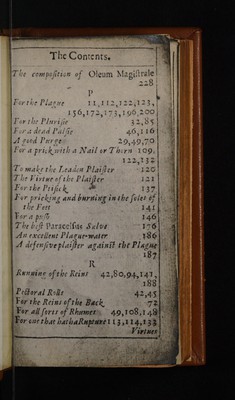 The Contents.
The composition of Oleum Magistrale
228
P
For the Plague 11,112,122,123,
156,172,173,196,200
For the Plurisie 32,85
For a dead Palsie 46,116
A good Purge 29,49,70
For a prick with a Nail or Thorn 109,
122,132
To make the Leaden Plaister 120
The Virtue of the Plaister 121
For the Ptisick 137
For pricking and burning in the soles of
the Feet 141
For a push 146
The best Paracelsus Salve 176
An excellent Plague-water 186
A defensive plaister against the Plague
187
R
Running of the Reins 42,80,94,141,
188
Pectoral Rolls 42,45
For the Reins of the Back 72
For all sorts of Rhumes 49,108,148
For one that hath a Rupture 113,114,132
Virtues